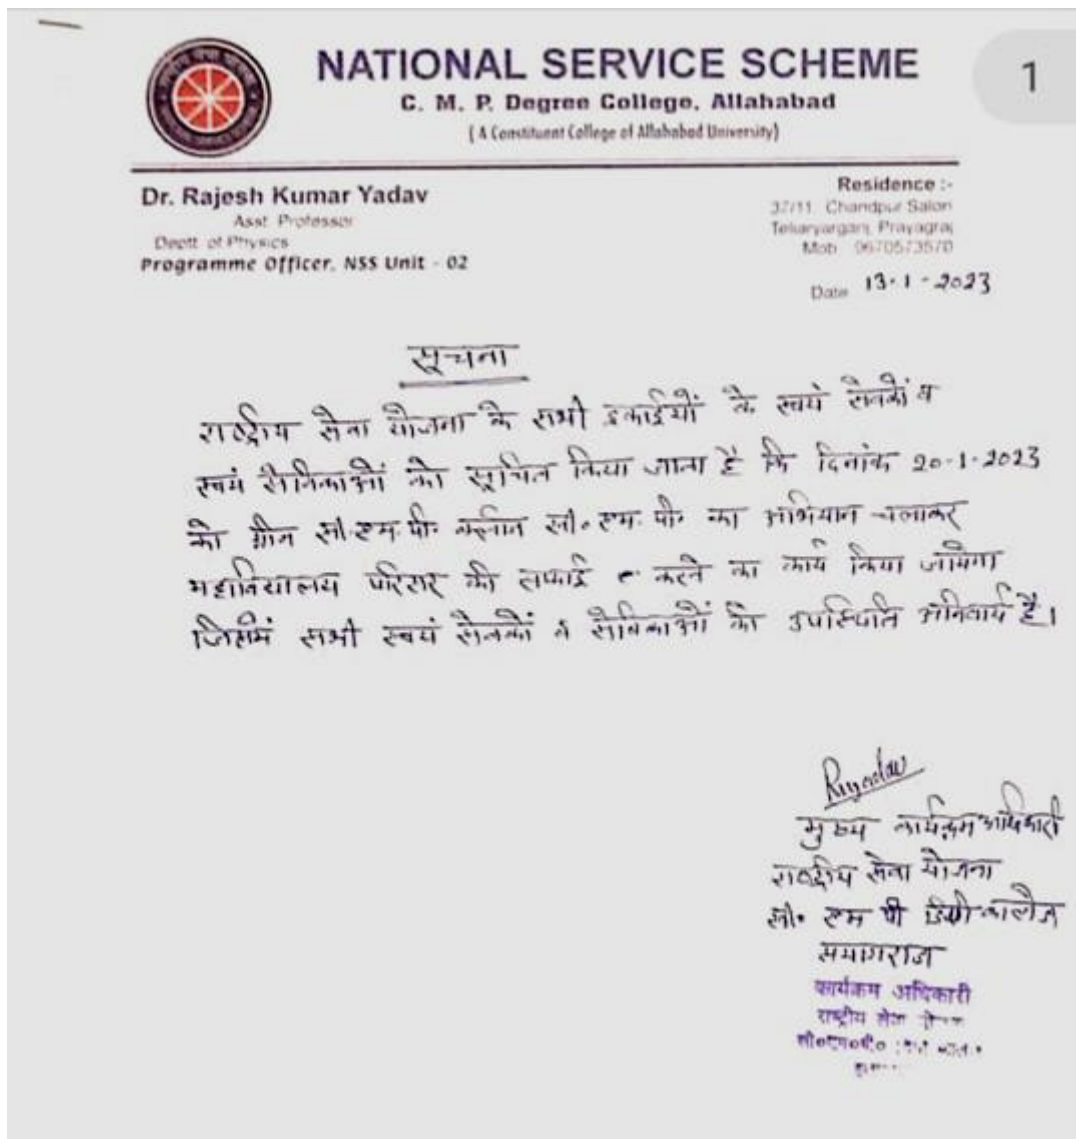 1
NATIONAL SERVICE SCHEME
C. M. P. Degree College, Allahabad
(A Constituent College of Allahabad University)
Dr. Rajesh Kumar Yadav
Asst. Professor
Deptt. of Physics
Programme Officer, NSS Unit - 02
Residence :-
37/11, Chandpur Salori
Teliaryarganj, Prayagraj
Mob. 9670573570
Date 13-1-2023
सूचना
राष्ट्रीय सेवा योजना के सभी इकाईयों के स्वयं सेवकों व
स्वयं सेविकाओं को सूचित किया जाता है कि दिनांक 20-1-2023
को ग्रीन सी.एम.पी. क्लीन सी.एम.पी. का अभियान चलाकर
महाविद्यालय परिसर की सफाई करने का कार्य किया जायेगा
जिसमें सभी स्वयं सेवकों व सेविकाओं की उपस्थिति अनिवार्य है।
Ryadav
मुख्य कार्यक्रम अधिकारी
राष्ट्रीय सेवा योजना
सी. एम पी डिग्री कालेज
प्रयागराज
कार्यक्रम अधिकारी
राष्ट्रीय सेवा
सी०एम०पी०